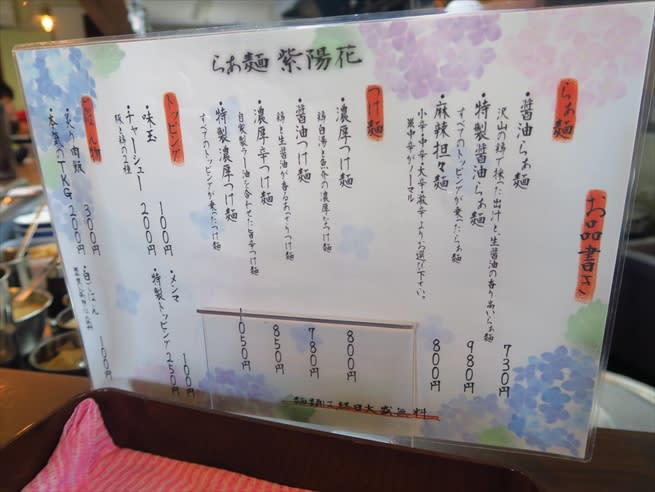 らぁ麺 紫陽花
お品書き
らぁ麺
・醤油らぁ麺 730円
沢山の鶏で炊いた出汁と、生醤油の香り高いらぁ麺
・特製醤油らぁ麺 980円
すべてのトッピングが乗ったらぁ麺
・麻辣担々麺 800円
小辛・中辛・大辛・激辛よりお選び下さい。
※中辛がノーマル
つけ麺
・濃厚つけ麺 800円
鶏白湯と魚介の濃厚なつけ麺
・醤油つけ麺 780円
鶏と生醤油が香るあっさりつけ麺
・濃厚辛つけ麺 850円
自家製ラー油を合わせた旨辛つけ麺
・特製濃厚つけ麺 1050円
すべてのトッピングが乗ったつけ麺
麺類は終日大盛無料
トッピング
・味玉 100円
・チャーシュー 200円
豚と鶏の2種
・メンマ 100円
・特製トッピング 250円
ごはん物
・炙り肉飯 300円
TKG 200円
・白ごはん 100円